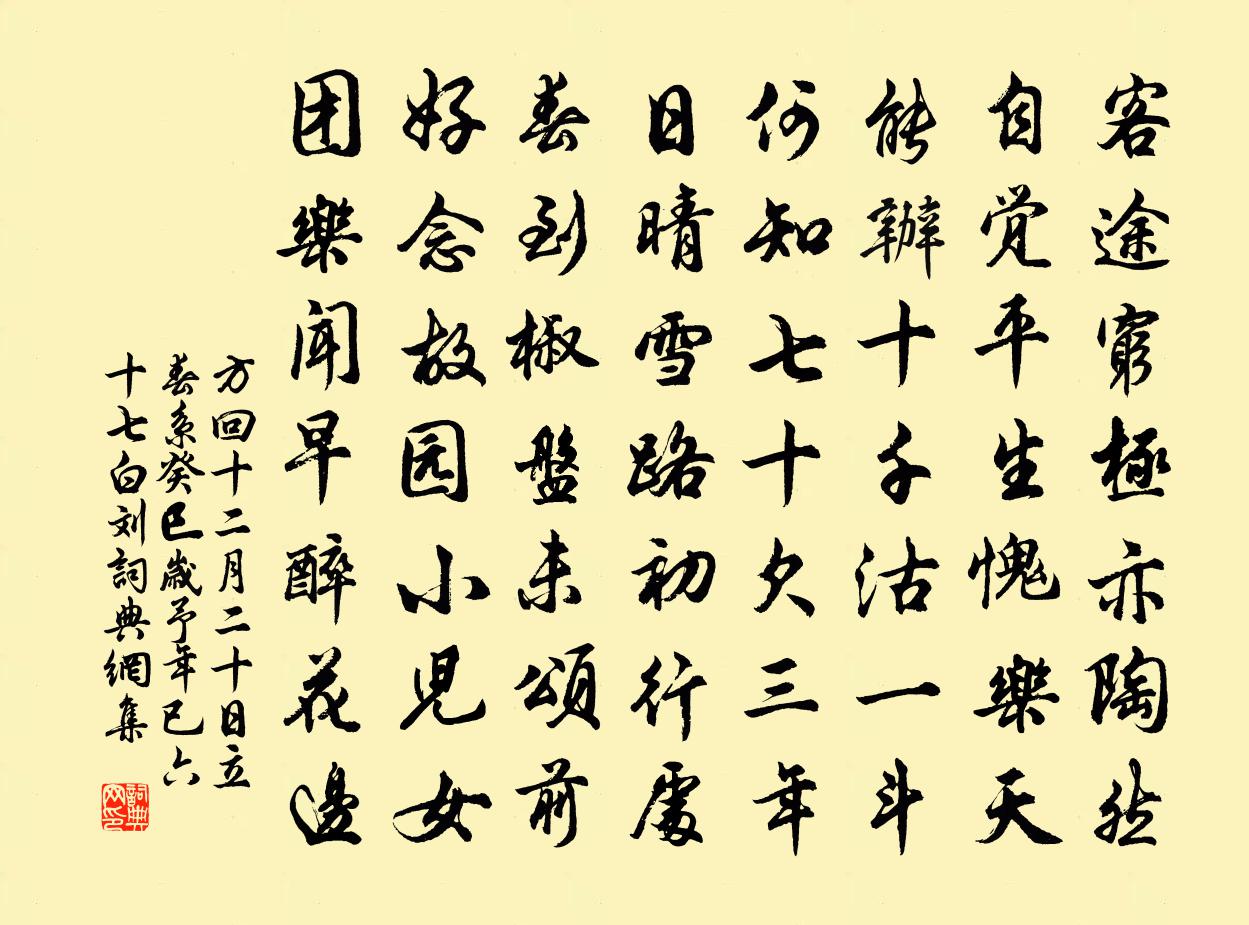 客途窮極亦陶然
自觉平生愧樂天
能辦十千沽一斗
何知七十欠三年
日晴雪路初行處
春到椒盤未頌前
好念故园小児女
团樂闻早醉花邊
方回十二月二十日立
春系癸巳歲予年已六
十七白刘詞典網集
詞典
网印